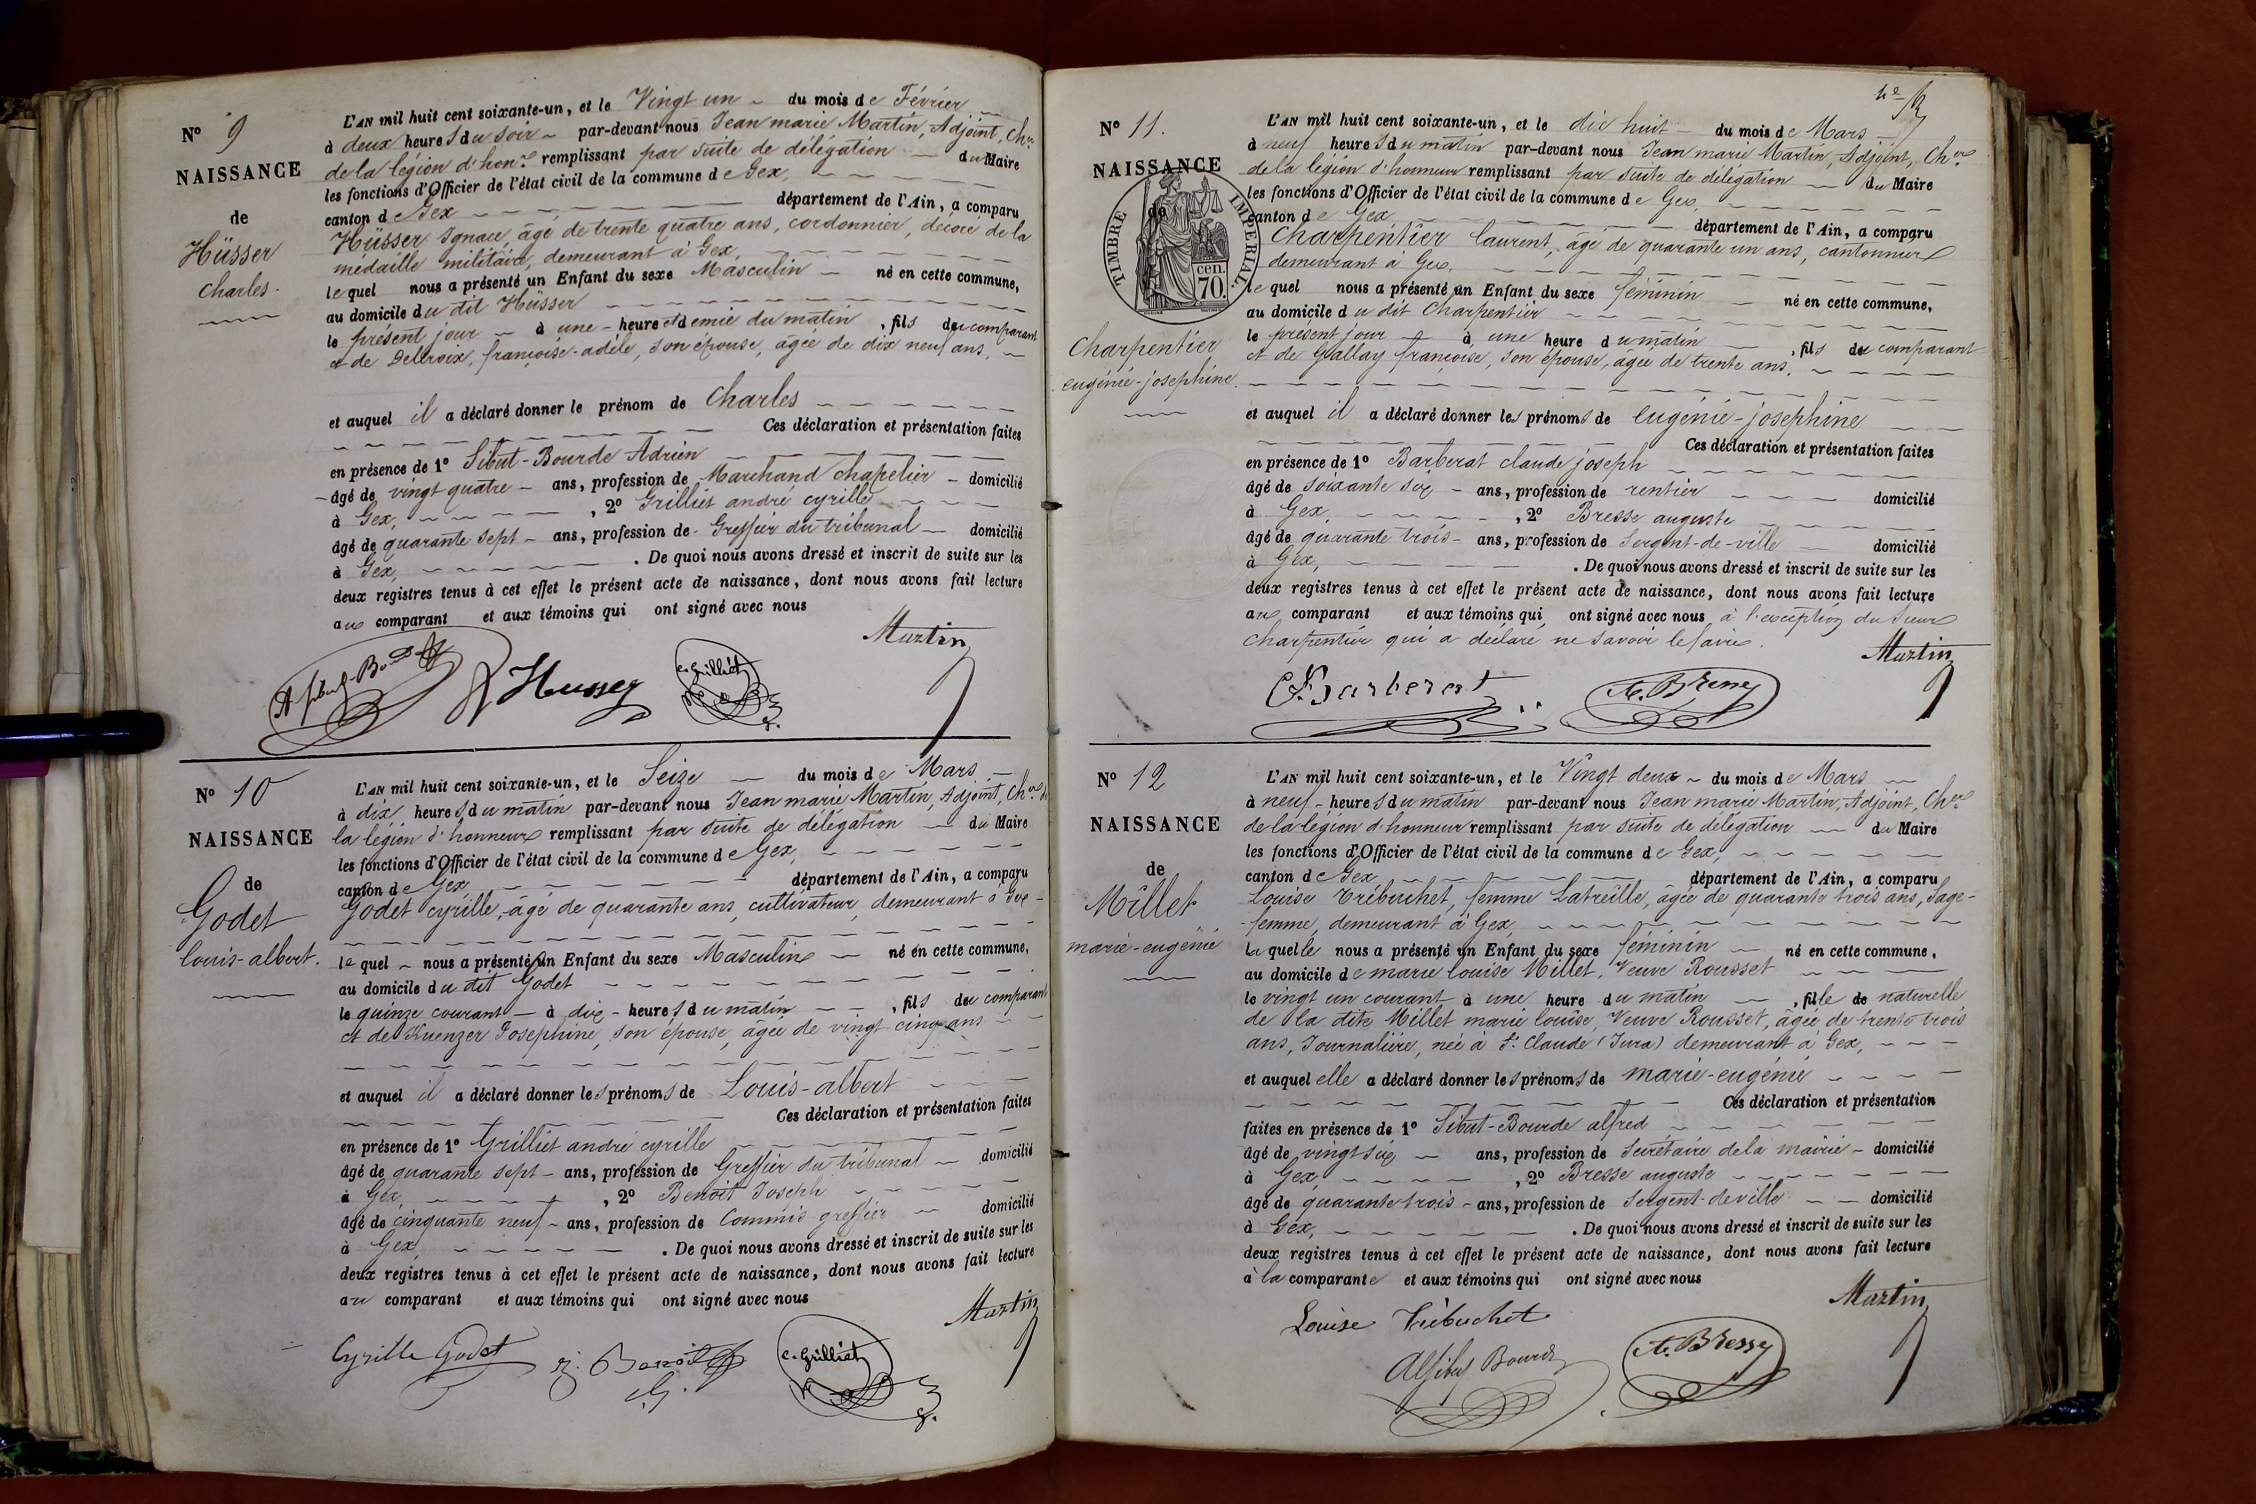 N° 9
NAISSANCE
de
Hüsser
Charles.
L'AN mil huit cent soixante-un, et le Vingt un du mois de Février
à deux heures du soir par-devant nous Jean marie Martin, Adjoint, Chr
de la légion d'honr remplissant par suite de délégation du Maire
les fonctions d'Officier de l'état civil de la commune de Gex,
canton de Gex département de l'Ain, a comparu
Hüsser Ignace, âgé de trente quatre ans, cordonnier, décoré de la
médaille militaire, demeurant à Gex,
lequel nous a présenté un Enfant du sexe Masculin né en cette commune,
au domicile du dit Hüsser
le présent jour à une heure et demie du matin, fils du comparant
et de Delcroix, françoise-adèle, son épouse, âgée de dix neuf ans.
et auquel il a déclaré donner le prénom de Charles
Ces déclaration et présentation faites
en présence de 1° Sibut-Bourde Adrien
âgé de vingt quatre ans, profession de Marchand chapelier domicilié
à Gex, , 2° Grilliet andré cyrille
âgé de quarante sept ans, profession de Greffier du tribunal domicilié
à Gex, . De quoi nous avons dressé et inscrit de suite sur les
deux registres tenus à cet effet le présent acte de naissance, dont nous avons fait lecture
au comparant et aux témoins qui ont signé avec nous
Martin
Husser
C. Grilliet
N° 10
NAISSANCE
de
Godet
louis-albert.
L'AN mil huit cent soixante-un, et le Seize du mois de Mars
à dix heures du matin par-devant nous Jean marie Martin, Adjoint, Chr de
la légion d'honneur remplissant par suite de délégation du Maire
les fonctions d'Officier de l'état civil de la commune de Gex,
canton de Gex département de l'Ain, a comparu
Godet cyrille, âgé de quarante ans, cultivateur, demeurant à Gex
lequel nous a présenté un Enfant du sexe Masculin né en cette commune,
au domicile du dit Godet
le quinze courant à dix heures du matin , fils du comparant
et de Kuenzer Josephine, son épouse, âgée de vingt cinq ans
et auquel il a déclaré donner les prénoms de Louis-albert
Ces déclaration et présentation faites
en présence de 1° Grilliet andré cyrille
âgé de quarante sept ans, profession de Greffier du tribunal domicilié
à Gex , 2° Benoit Joseph
âgé de cinquante neuf ans, profession de Commis greffier domicilié
à Gex . De quoi nous avons dressé et inscrit de suite sur les
deux registres tenus à cet effet le présent acte de naissance, dont nous avons fait lecture
au comparant et aux témoins qui ont signé avec nous
Martin
Cyrille Godet
Benoit
C. Grilliet
N° 11.
NAISSANCE
de
TIMBRE IMPERIAL.
cen.
70.
Charpentier
eugénie-josephine.
L'AN mil huit cent soixante-un, et le dix huit du mois de Mars
à neuf heures du matin par-devant nous Jean marie Martin, Adjoint, Chr
de la légion d'honneur remplissant par suite de délégation du Maire
les fonctions d'Officier de l'état civil de la commune de Gex.
canton de Gex département de l'Ain, a comparu
Charpentier laurent, âgé de quarante un ans, cantonnier
demeurant à Gex,
lequel nous a présenté un Enfant du sexe féminin né en cette commune,
au domicile du dit Charpentier
le présent jour à une heure du matin , fils du comparant
et de Grallay françoise, son épouse, âgée de trente ans,
et auquel il a déclaré donner les prénoms de eugénie-josephine
Ces déclaration et présentation faites
en présence de 1° Barberat claude joseph
âgé de soixante six ans, profession de rentier domicilié
à Gex, , 2° Bresse auguste
âgé de quarante trois ans, profession de Sergent-de-ville domicilié
à Gex, . De quoi nous avons dressé et inscrit de suite sur les
deux registres tenus à cet effet le présent acte de naissance, dont nous avons fait lecture
au comparant et aux témoins qui ont signé avec nous à l'exception du sieur
Charpentier qui a déclaré ne savoir le faire.
Martin
Barberat
A. Bresse
N° 12
NAISSANCE
de
Millet
marie-eugénie
L'AN mil huit cent soixante-un, et le Vingt deux du mois de Mars
à neuf heures du matin par-devant nous Jean marie Martin, Adjoint, Chr
de la légion d'honneur remplissant par suite de délégation du Maire
les fonctions d'Officier de l'état civil de la commune de Gex,
canton de Gex département de l'Ain, a comparu
Louise Trébuchet, femme Latreille, âgée de quarante trois ans, Sage-
femme, demeurant à Gex,
laquelle nous a présenté un Enfant du sexe féminin né en cette commune,
au domicile de marie louise Millet, Veuve Rousset
le vingt un courant à une heure du matin , fille de naturelle
de la dite Millet marie louise, Veuve Rousset, âgée de trente trois
ans, Journalière, née à St Claude (Jura) demeurant à Gex,
et auquel elle a déclaré donner les prénoms de marie-eugénie
Ces déclaration et présentation
faites en présence de 1° Sibut-Bourde alfred
âgé de vingt six ans, profession de Secrétaire de la mairie domicilié
à Gex , 2° Bresse auguste
âgé de quarante trois ans, profession de Sergent-de ville domicilié
à Gex, . De quoi nous avons dressé et inscrit de suite sur les
deux registres tenus à cet effet le présent acte de naissance, dont nous avons fait lecture
à la comparante et aux témoins qui ont signé avec nous
Martin
Louise Trébuchet
A. Bresse